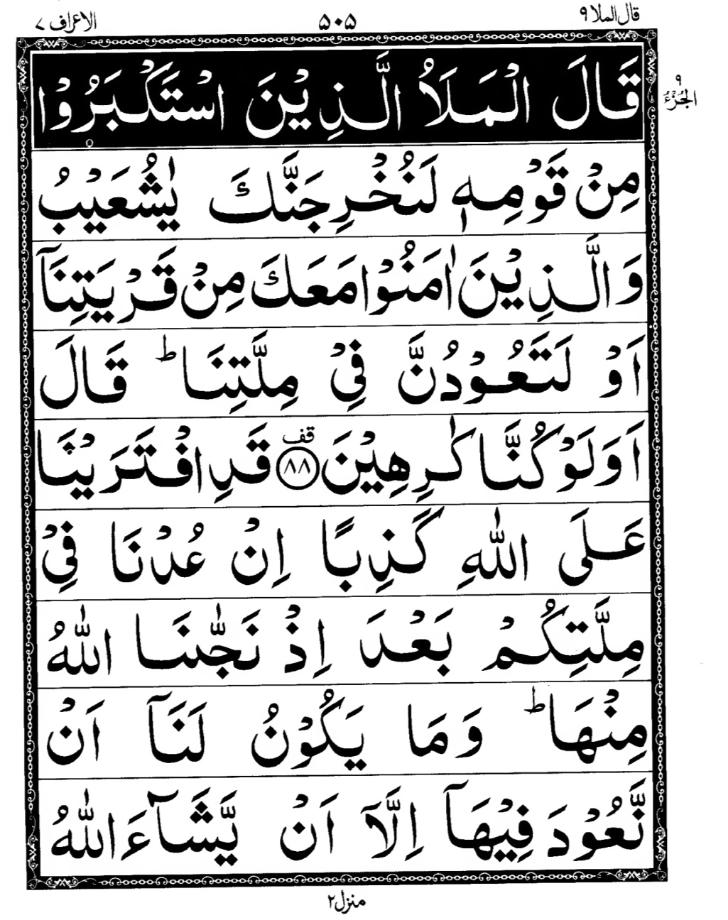 قال الملا ۹
۵۰۵
الاعراف ۷
۹
الجزء
قَالَ الْمَلَاُ الَّذِيْنَ اسْتَكْبَرُوْا
مِنْ قَوْمِهٖ لَنُخْرِجَنَّكَ يٰشُعَيْبُ
وَالَّذِيْنَ اٰمَنُوْا مَعَكَ مِنْ قَرْيَتِنَاۤ
اَوْ لَتَعُوْدُنَّ فِيْ مِلَّتِنَا ؕ قَالَ
اَوَلَوْ كُنَّا كٰرِهِيْنَ قف ﴿۸۸﴾ قَدِ افْتَرَيْنَا
عَلَى اللّٰهِ كَذِبًا اِنْ عُدْنَا فِيْ
مِلَّتِكُمْ بَعْدَ اِذْ نَجّٰىنَا اللّٰهُ
مِنْهَا ؕ وَمَا يَكُوْنُ لَنَاۤ اَنْ
نَّعُوْدَ فِيْهَاۤ اِلَّاۤ اَنْ يَّشَآءَ اللّٰهُ
منزل ۲